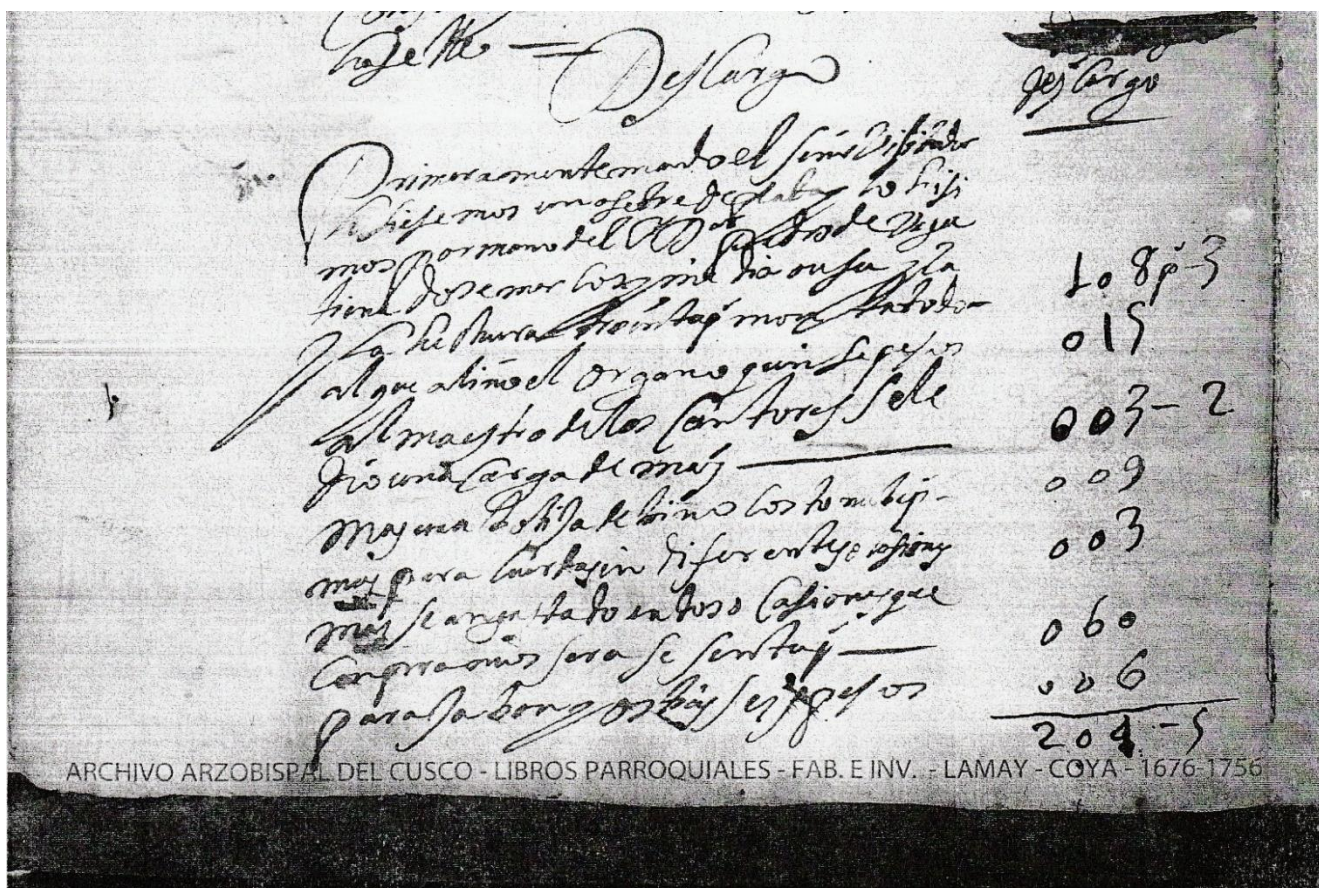 Descargo
descargo
Primeramente mando el señor Visitador
hisiesemos un asetre de plata y lo hisi
mos por mano del Pedro de Vega
tiene dose marcos y media onsa y la
108 p 3
la hechura treinta p montatodo
al que aliño el organo quinse pesos
015
al maestro de los Cantores se le
dio una carga de mais
003 - 2
mas una botija de bino costo nuebe p
009
mas para cuerdas in diferentes ocasiones
003
mas se an gastado en toso Casiones que
Conpramos sera sesenta p
060
para Jabon y ostias seis pesos
006
204 - 5
ARCHIVO ARZOBISPAL DEL CUSCO - LIBROS PARROQUIALES - FAB. E INV. - LAMAY - COYA - 1676-1756